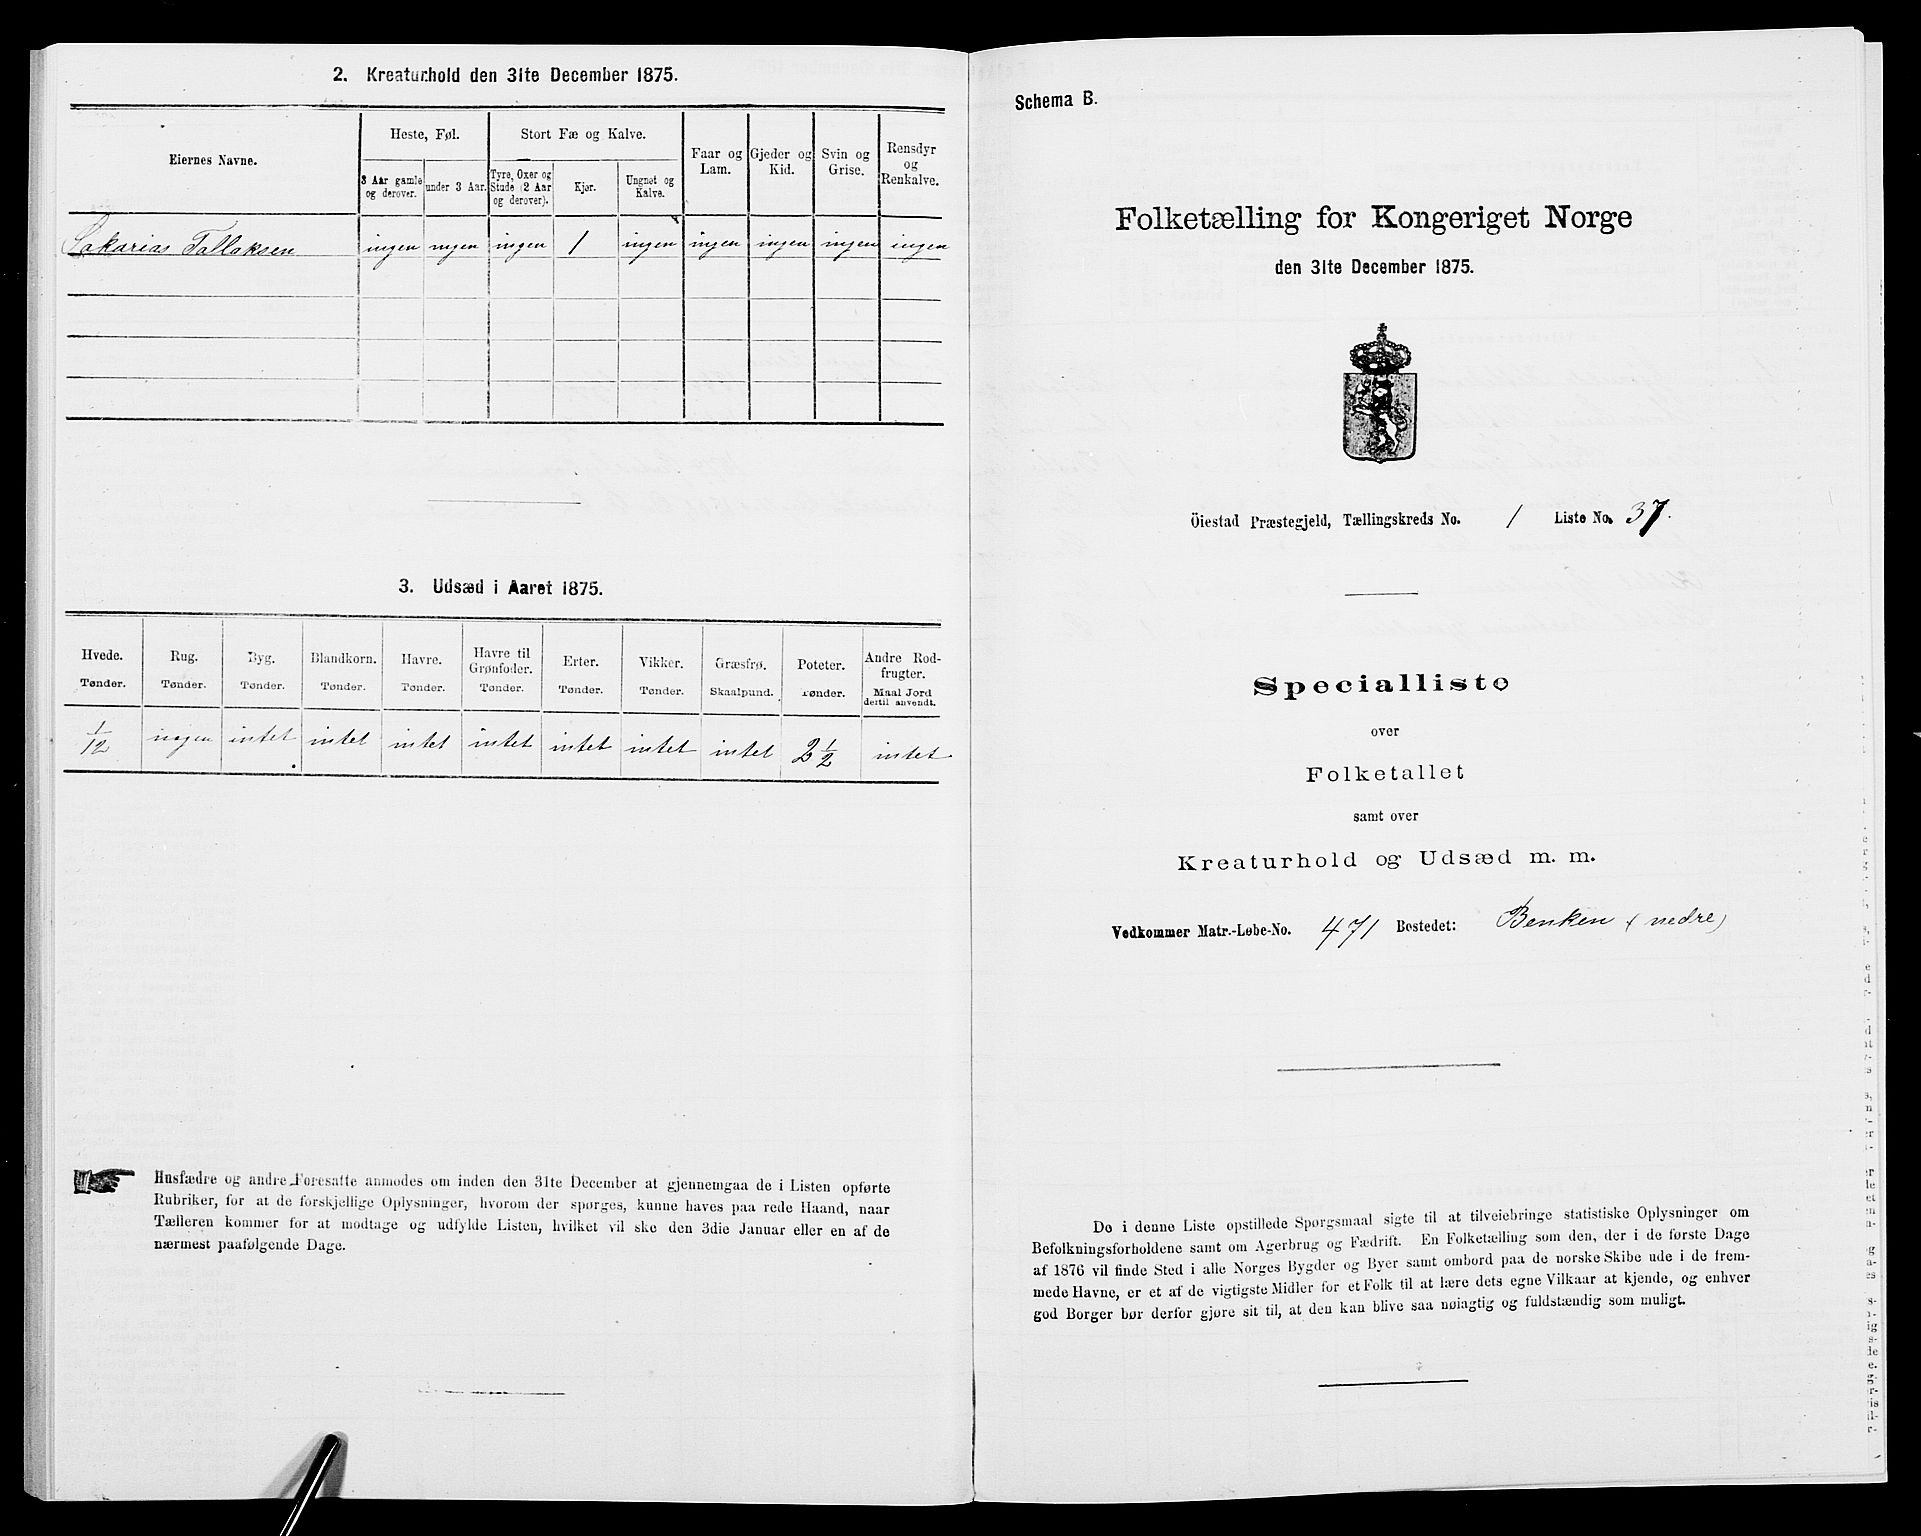 2. Kreaturhold den 31te December 1875.
Eiernes Navne.
Heste, Føl.
Stort Fæ og Kalve.
Faar og Lam.
Gjeder og Kid.
Svin og Grise.
Rensdyr og Renkalve.
3 Aar gamle og derover.
under 3 Aar.
Tyre, Oxer og Stude (2 Aar og derover).
Kjør.
Ungnøt og Kalve.
Sakarias Tallaksen ingen ingen ingen 1 ingen ingen ingen ingen ingen
3. Udsæd i Aaret 1875.
Hvede. Tønder.
Rug. Tønder.
Byg. Tønder.
Blandkorn. Tønder.
Havre. Tønder.
Havre til Grønfoder. Tønder.
Erter. Tønder.
Vikker. Tønder.
Græsfrø. Skaalpund.
Poteter. Tønder.
Andre Rodfrugter. Maal Jord dertil anvendt.
1/12 intet intet intet intet intet intet intet 2 1/2 intet
Husfædre og andre Foresatte anmodes om inden den 31te December at gjennemgaa de i Listen opførte
Rubriker, for at de forskjellige Oplysninger, hvorom der spørges, kunne haves paa rede Haand, naar
Tælleren kommer for at modtage og udfylde Listen, hvilket vil ske den 3die Januar eller en af de
nærmest paafølgende Dage.
Schema B.
Folketælling for Kongeriget Norge
den 31te December 1875.
Öiestad Præstegjeld, Tællingskreds No. 1 Liste No. 37.
Specialliste
over
Folketallet
samt over
Kreaturhold og Udsæd m. m.
Vedkommer Matr.-Løbe-No. 471 Bostedet: Benken (nedre)
De i denne Liste opstillede Spørgsmaal sigte til at tilveiebringe statistiske Oplysninger om
Befolkningsforholdene samt om Agerbrug og Fædrift. En Folketælling som den, der i de første Dage
af 1876 vil finde Sted i alle Norges Bygder og Byer samt ombord paa de norske Skibe ude i de frem-
mede Havne, er et af de vigtigste Midler for et Folk til at lære dets egne Vilkaar at kjende, og enhver
god Borger bør derfor gjøre sit til, at den kan blive saa nøiagtig og fuldstændig som muligt.